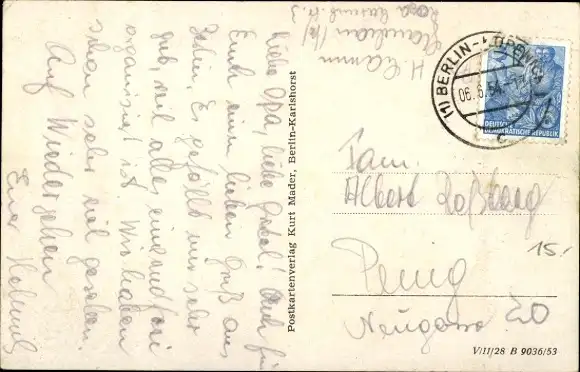 Liebe Opa, liebe Gretel! Auch für
Euch einen lieben Gruß aus
Berlin. Es gefällt mir sehr
gut, weil alles einwandfrei
organisiert ist. Wir haben
schon sehr viel gesehen.
Auf Wiedersehen
Euer Helmut
H.
Postkartenverlag Kurt Mader, Berlin-Karlshorst
(1) BERLIN-
06.6.54
DEUTSCHE
DEMOKRATISCHE REPUBLIK
Fam.
Albert Roßberg
Penig
Neugasse 20
15.-
V/11/28 B 9036/53